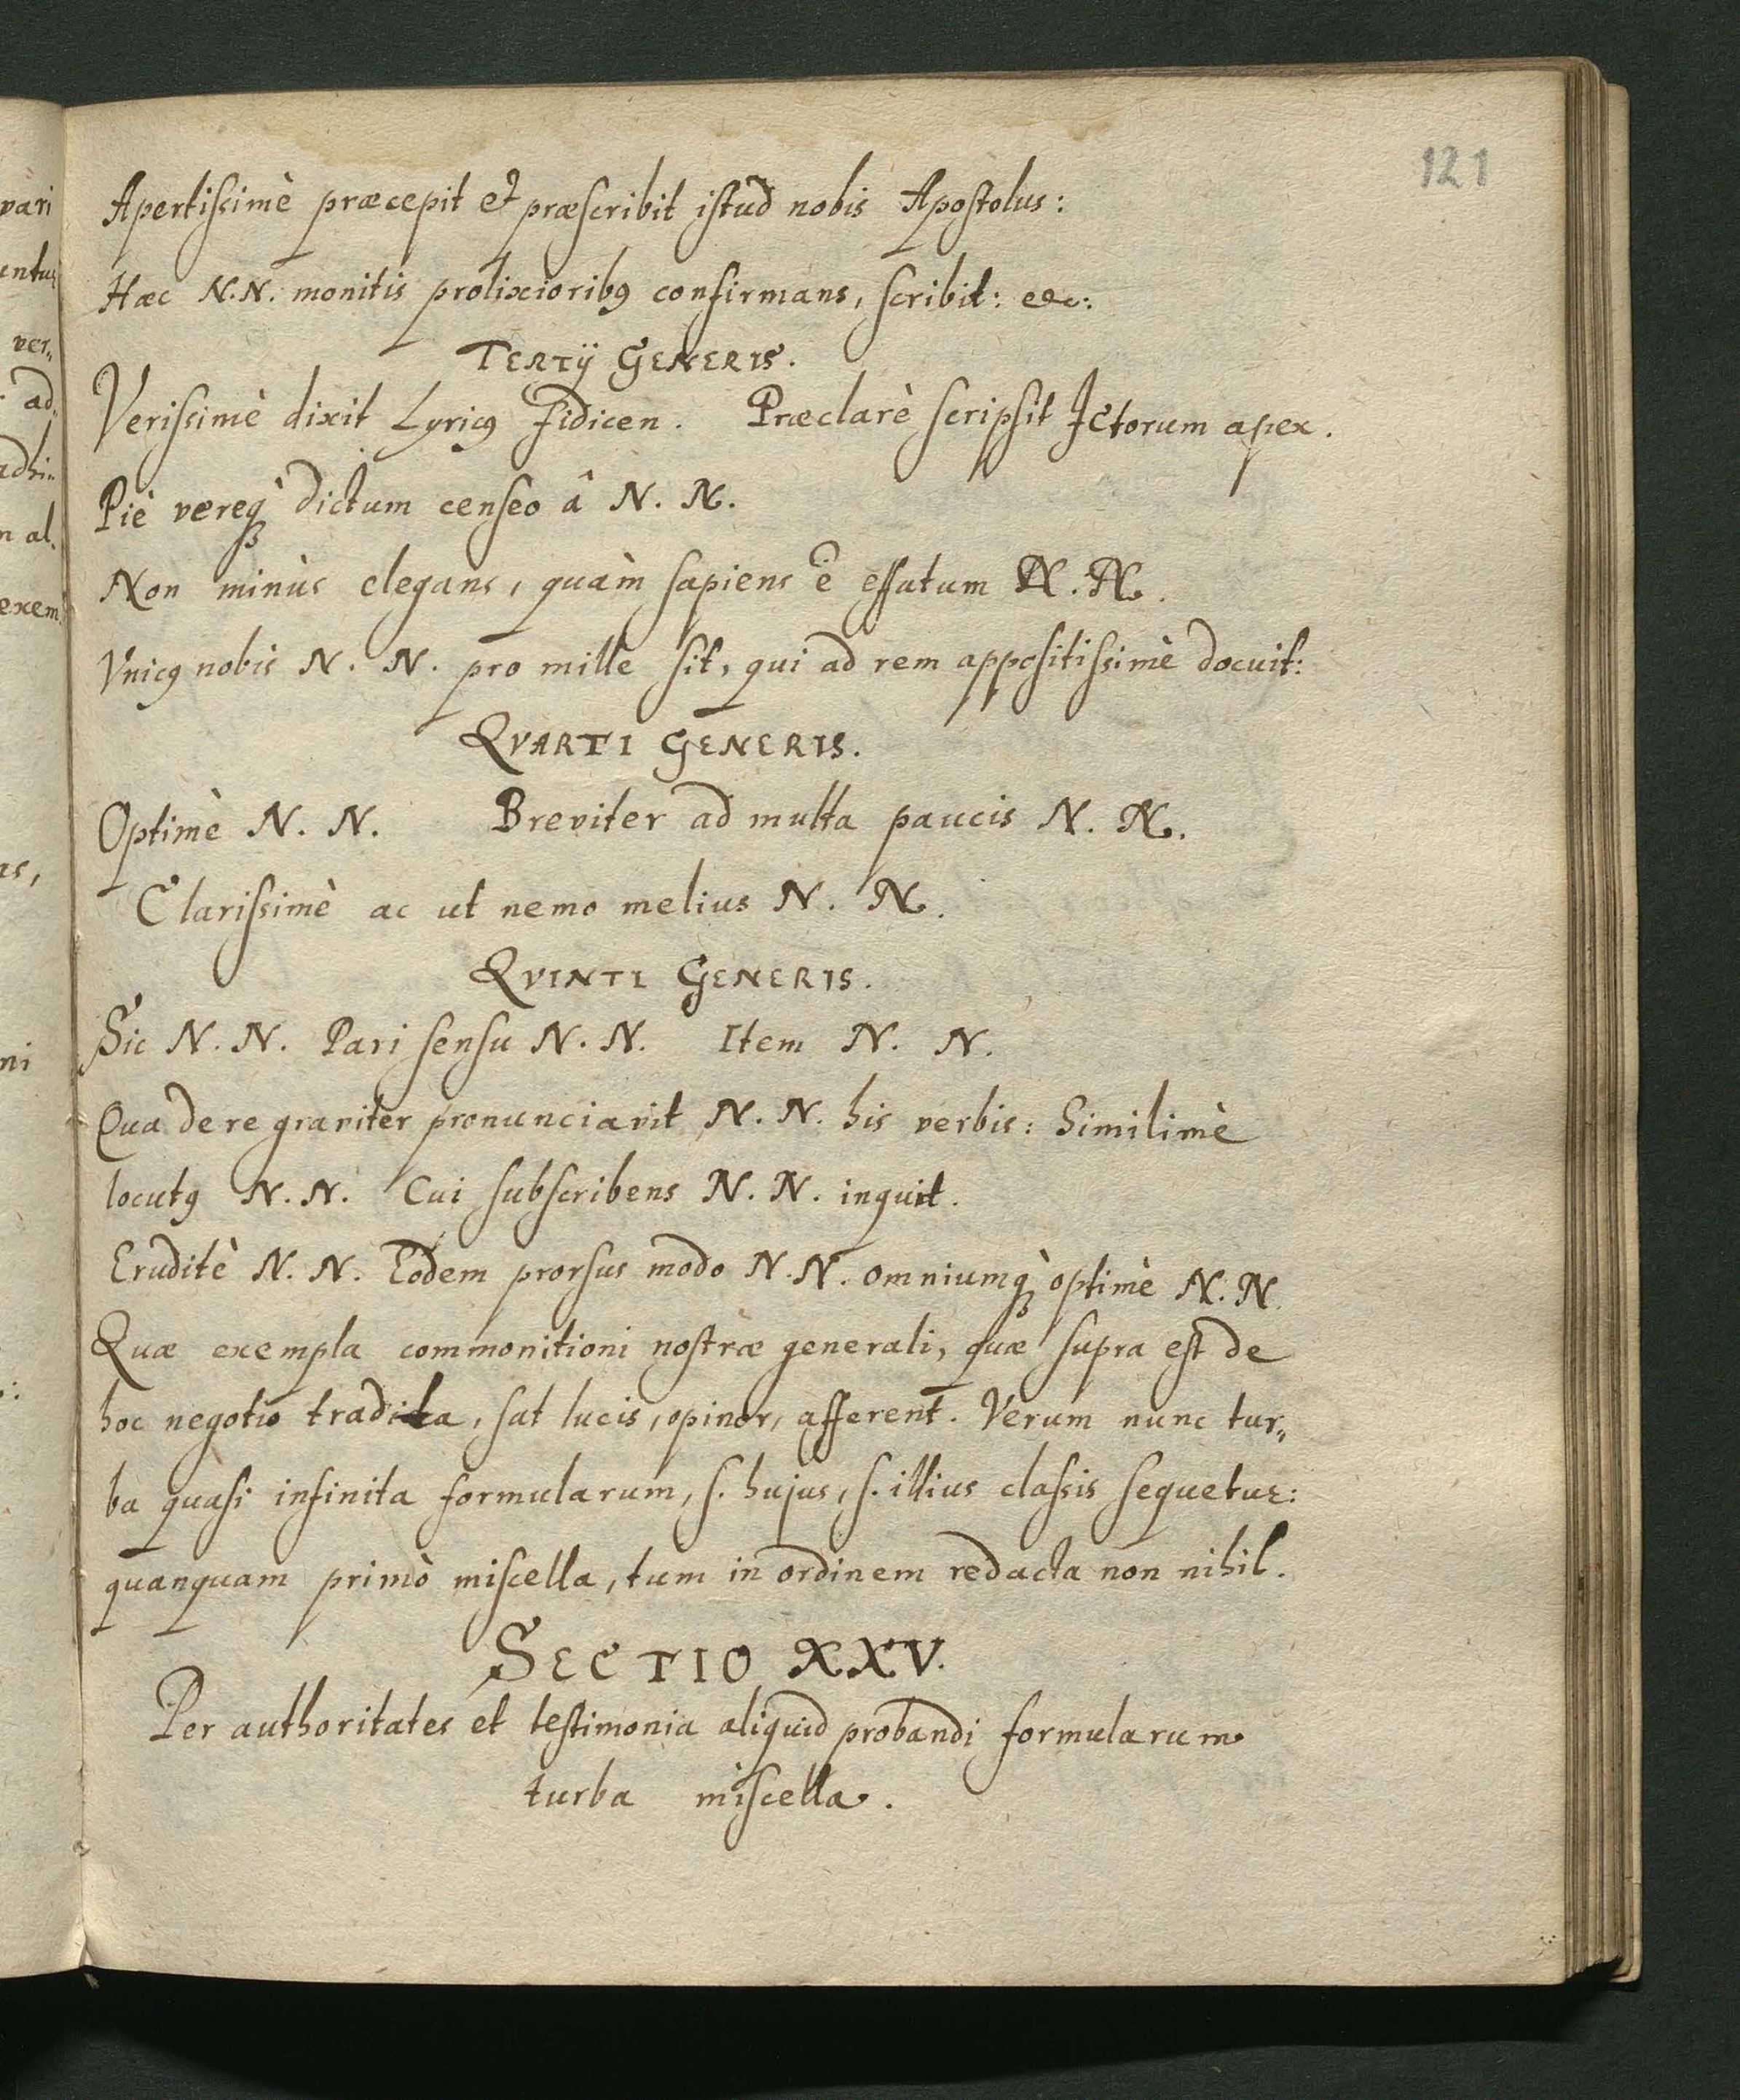 121
Apertissimè præcepit et præscribit istud nobis Apostolus:
Hæc N.N. monitis prolixioribꝰ confirmans, scribit: etc:
TERTIJ GENERIS.
Verissimè dixit Lyricꝰ fidicen. Præclarè scripsit JCtorum apex.
Piè vereqꝫ dictum censeo â N. N.
Non minùs elegans, quàm sapiens ē effatum N. N.
Vnicꝰ nobis N. N. pro mille sit, qui ad rem appositissimè docuit:
QVARTI GENERIS.
Optimè N. N. Breviter ad multa paucis N. N.
Clarissimè ac ut nemo melius N. N.
QVINTI GENERIS.
Sic N. N. Pari sensu N. N. Item N. N.
Qua de re graviter pronunciavit N. N. his verbis: Similimè
locutꝰ N. N. Cui subscribens N. N. inquit.
Eruditè N. N. Eodem prorsus modo N. N. omniumqꝫ optimè N. N.
Quæ exempla commonitioni nostræ generali, quæ supra est de
hoc negotio tradita, sat lucis, opinor, afferent. Verum nunc tur„
ba quasi infinita formularum, s. hujus, s. illius classis sequetur:
quanquam primò miscella, tum in ordinem redacta non nihil.
SECTIO XXV.
Per authoritates et testimonia aliquid probandi formularum
turba miscella.